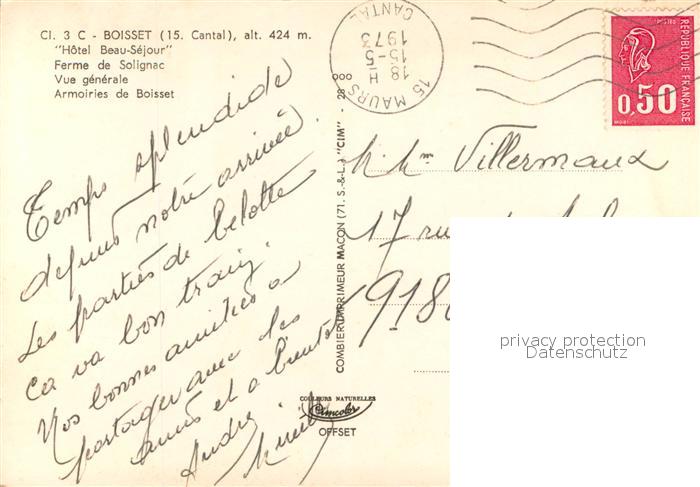 Cl. 3 C - BOISSET (15. Cantal), alt. 424 m.
"Hôtel Beau-Séjour"
Ferme de Solignac
Vue générale
Armoiries de Boisset
Temps splendide
depuis notre arrivée.
Les parties de belotte
ça va bon train.
Nos bonnes amitiés a
partager avec les
amis et a bientot
André
15 MAURS
CANTAL
18 H
15-5
1973
RÉPUBLIQUE FRANÇAISE
POSTES
0,50
COMBIER IMPRIMEUR MACON (71. S.-&L.) "CIM" - 28 000
COULEURS NATURELLES
Cimcolor
OFFSET
M. Mme Villermaux
17 rue
9180
privacy protection
Datenschutz